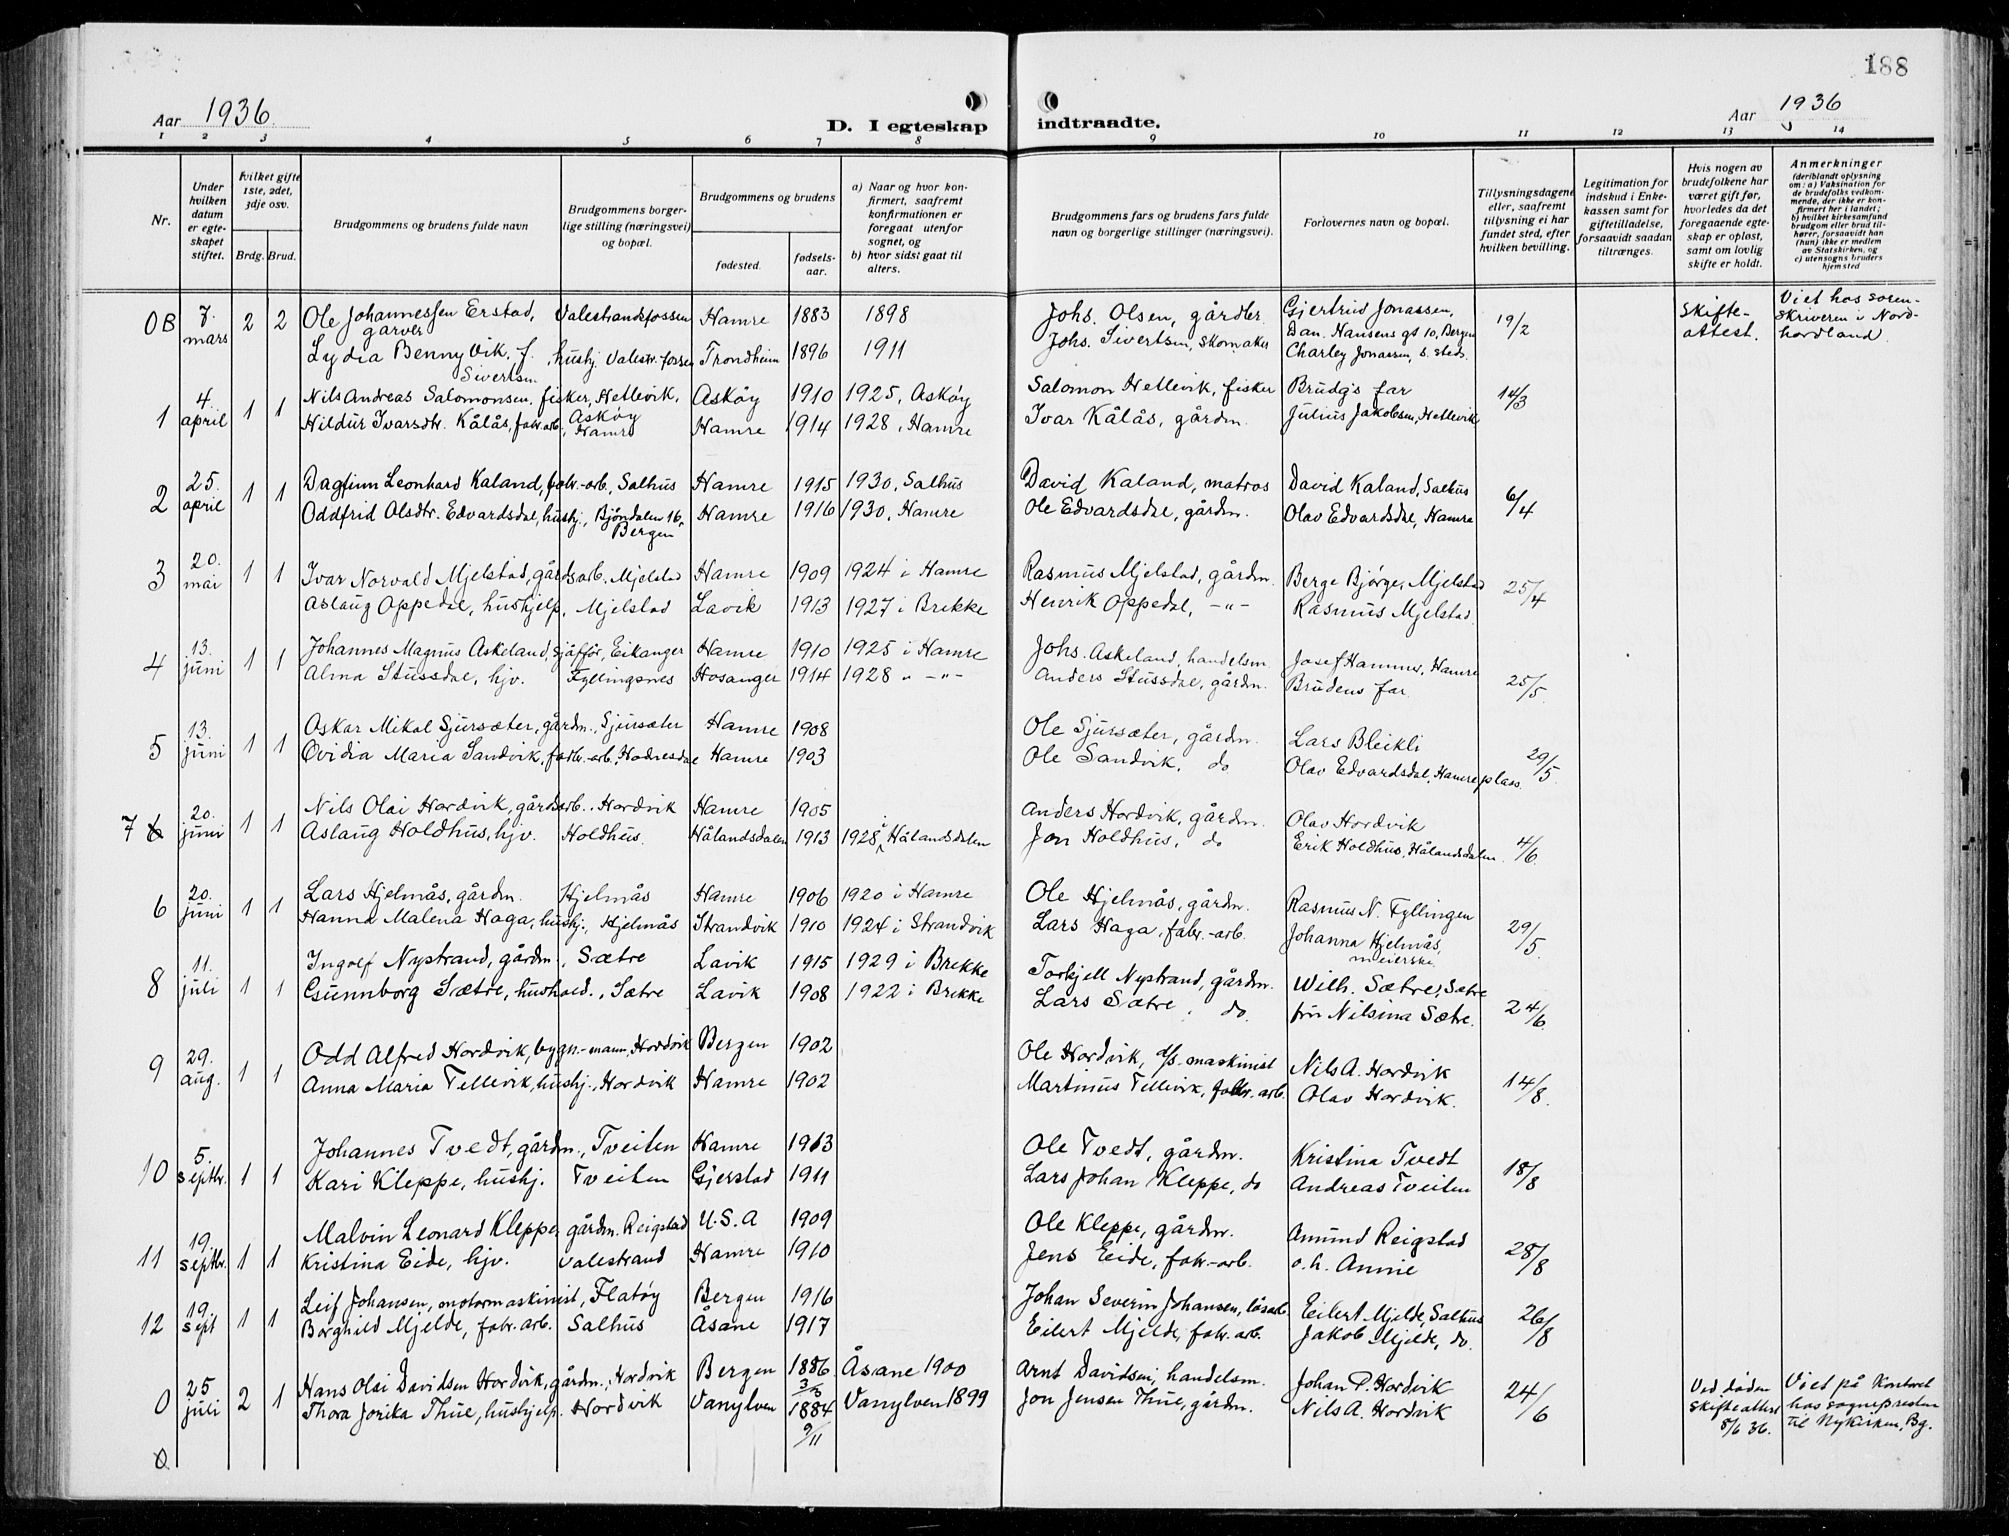 188
Aar 1936
D. I egteskap indtraadte.
Aar 1936
1 2 3 4 5 6 7 8 9 10 11 12 13 14
Nr.
Under hvilken datum er egteskapet stiftet.
Hvilket gifte 1ste, 2det, 3dje osv.
Brdg. Brud.
Brudgommens og brudens fulde navn
Brudgommens borgerlige stilling (næringsvei) og bopæl.
Brudgommens og brudens
fødested.
fødselsaar.
a) Naar og hvor konfirmert, saafremt konfirmationen er foregaat utenfor sognet, og
b) hvor sidst gaat til alters.
Brudgommens fars og brudens fars fulde navn og borgerlige stillinger (næringsvei).
Forlovernes navn og bopæl.
Tillysningsdagene eller, saafremt tillysning ei har fundet sted, efter hvilken bevilling.
Legitimation for indskud i Enkekassen samt for giftetilladelse, forsaavidt saadan tiltrænges.
Hvis nogen av brudefolkene har været gift før, hvorledes da det foregaaende egteskap er opløst, samt om lovlig skifte er holdt.
Anmerkninger (deriblandt oplysning om: a) Vaksination for de brudefolks vedkommende, der ikke er konfirmert her i landet; b) hvilket kirkesamfund brudgom eller brud tilhører, forsaavidt han (hun) ikke er medlem av Statskirken, og c) utensogns bruders hjemsted
0B 7. mars 2 2 Ole Johannessen Erstad, garver Valestrandsfossen Hamre 1883 1898 Johs. Olsen, gårdbr. Gjertrud Jonassen, Dan. Hansens gt 10, Bergen 19/2 Skifteattest. Viet hos sorenskriveren i Nordhordland
Lydia Benny Vik, f. Sivertsen hushj. Valestr.fossen Trondheim 1896 1911 Johs. Sivertsen, skomaker Charley Jonassen, s. sted.
1 4. april 1 1 Nils Andreas Salomonsen, fisker, Hetlevik, Askøy Askøy 1910 1925, Askøy Salomon Hetlevik, fisker Brudg's far 14/3
Hildur Ivarsdtr. Kålås, fabr.arb., Hamre Hamre 1914 1928, Hamre Ivar Kålås, gårdm. Julius Jakobsen, Hetlevik
2 25. april 1 1 Dagfinn Leonhard Kaland, fabr.-arb., Salhus Hamre 1915 1930, Salhus David Kaland, matros David Kaland, Salhus 6/4
Oddfrid Olsdtr. Edvardsdal, hushj., Bjøndalen 16, Bergen Hamre 1916 1930, Hamre Ole Edvardsdal, gårdm. Olav Edvardsdal, Hamre
3 20. mai 1 1 Ivar Norvald Mjelstad, gårdsarb. Mjelstad Hamre 1909 1924 i Hamre Rasmus Mjelstad, gårdm. Berge Bjørge, Mjelstad 25/4
Aslaug Oppedal, hushjelp, Mjelstad Lavik 1913 1927 i Brekke Henrik Oppedal, -"- Rasmus Mjelstad
4 13. juni 1 1 Johannes Magnus Askeland, sjåfför, Eikanger Hamre 1910 1925 i Hamre Johs. Askeland, handelsm. Josef Hammer, Hamre 25/5.
Alma Stussdal, hjv. Fyllingsnes Hosanger 1914 1928 " -"- Anders Stussdal, gårdm. Brudens far
5 13. juni 1 1 Oskar Mikal Sjursæter, gårdm., Sjursæter Hamre 1908 Ole Sjursæter, gårdm. Lars Bleikli 29/5.
Ovidia Maria Sandvik, fabr.-arb., Hodnesdal Hamre 1903 Ole Sandvik, do Olav Edvardsdal, Hamreplass
7 6 20. juni 1 1 Nils Olai Hordvik, gårdsarb., Hordvik Hamre 1905 Anders Hordvik, gårdm. Olav Hordvik 4/6.
Aslaug Holdhus, hjv. Holdhus. Hålandsdalen 1913 1928 i Hålandsdalen Jon Holdhus, do Erik Holdhus, Hålandsdalen
6 20. juni 1 1 Lars Hjelmås, gårdm. Hjelmås Hamre 1906 1920 i Hamre Ole Hjelmås, gårdm. Rasmus N. Fyllingen 29/5.
Hanna Malena Haga, hushj., Hjelmås Strandvik 1910 1924 i Strandvik Lars Haga, fabr.-arb. Johanna Hjelmås, meierske
8 11. juli 1 1 Ingolf Nystrand, gårdm., Sætre Lavik 1915 1929 i Brekke Torkjell Nystrand, gårdm. Wilh. Sætre, Sætre 24/6.
Gunnborg Sætre, hushold., Sætre Lavik 1908 1922 i Brekke Lars Sætre, do. fru Nilsina Sætre.
9 29. aug. 1 1 Odd Alfred Hordvik, bygn.-mann, Hordvik Bergen 1902 Ole Hordvik, d/s. maskinist Nils A. Hordvik 14/8.
Anna Maria Tellevik, hushj., Hordvik Hamre 1902 Martinus Tellevik, fabr. arb. Olav Hordvik.
10 5. septbr. 1 1 Johannes Tvedt, gårdm., Tveiten Hamre 1913 Ole Tvedt, gårdm. Kristina Tvedt 18/8
Kari Kleppe, hushj. Tveiten Gjerstad 1911 Lars Johan Kleppe, do Andreas Tveiten
11 19. septbr. 1 1 Malvin Leonard Kleppe, gårdm. Reigstad U.S.A 1909 Ole Kleppe, gårdm. Amund Reigstad 28/8
Kristina Eide, hjv. Valestrand Hamre 1910 Jens Eide, fabr.-arb. o. h. Annie
12 19. sept 1 1 Leif Johansen, motormaskinist, Flatøy Bergen 1916 Johan Severin Johansen, løsarb. Eilert Mjelde, Salhus 26/8
Borghild Mjelde, fabr. arb. Salhus Åsane 1917 Eilert Mjelde, fabr. arb. Jakob Mjelde, do.
0 25 juli 2 1 Hans Olai Davidsen Hordvik, gårdm., Hordvik Bergen 1886 3/5 Åsane 1900 Arnt Davidsen, handelsm. Johan P. Hordvik 24/6 Ved døden skifteattest 8/6 36. Viet på kontoret hos sognepresten til Nykirken, Bg.
Thora Jorika Thue, hushjelp. Hordvik Vanylven 1884 9/11 Vanylven 1899 Jon Jensen Thue, gårdm. Nils A. Hordvik
0.